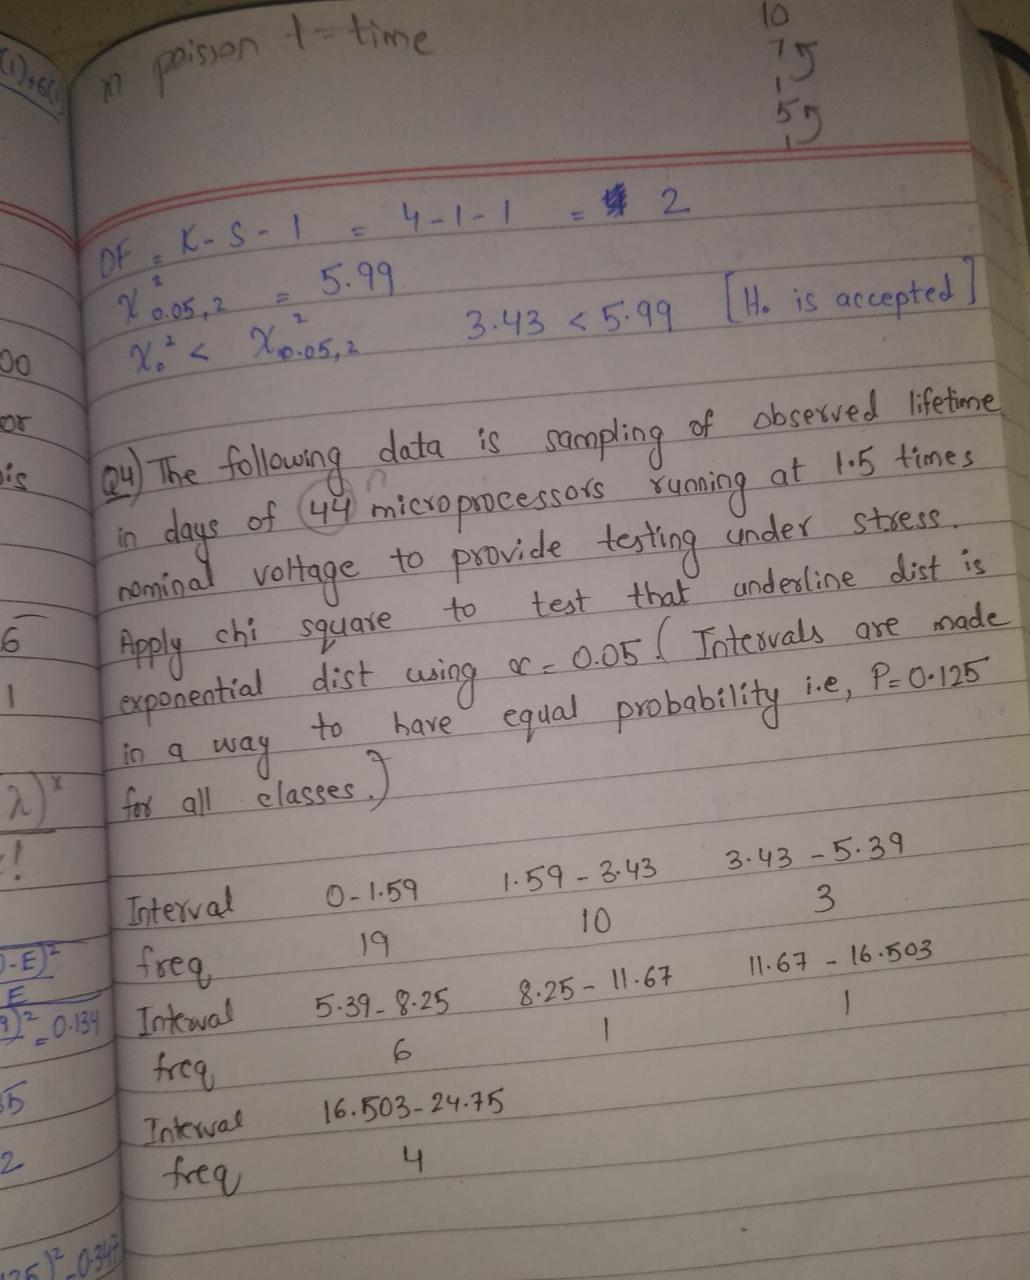 in poisson t = time
10
75
1
55
1
DF = K - S - 1 = 4 - 1 - 1 = 2
χ²0.05, 2 = 5.99
χ₀² < χ²0.05, 2 3.43 < 5.99 [H₀ is accepted]
Q4) The following data is sampling of observed lifetime
in days of 44 microprocessors running at 1.5 times
n
nominal voltage to provide testing under stress.
Apply chi square to test that underline dist is
exponential dist using α = 0.05. (Intervals are made
in a way to have equal probability i.e, P = 0.125
for all classes.)
Interval 0 - 1.59 1.59 - 3.43 3.43 - 5.39
freq 19 10 3
Interval 5.39 - 8.25 8.25 - 11.67 11.67 - 16.503
freq 6 1 1
Interval 16.503 - 24.75
freq 4
(1)+6(
00
or
is
6
1
λ)ˣ
!
-E)²
E
9)² = 0.134
35
2
25)² 0.347